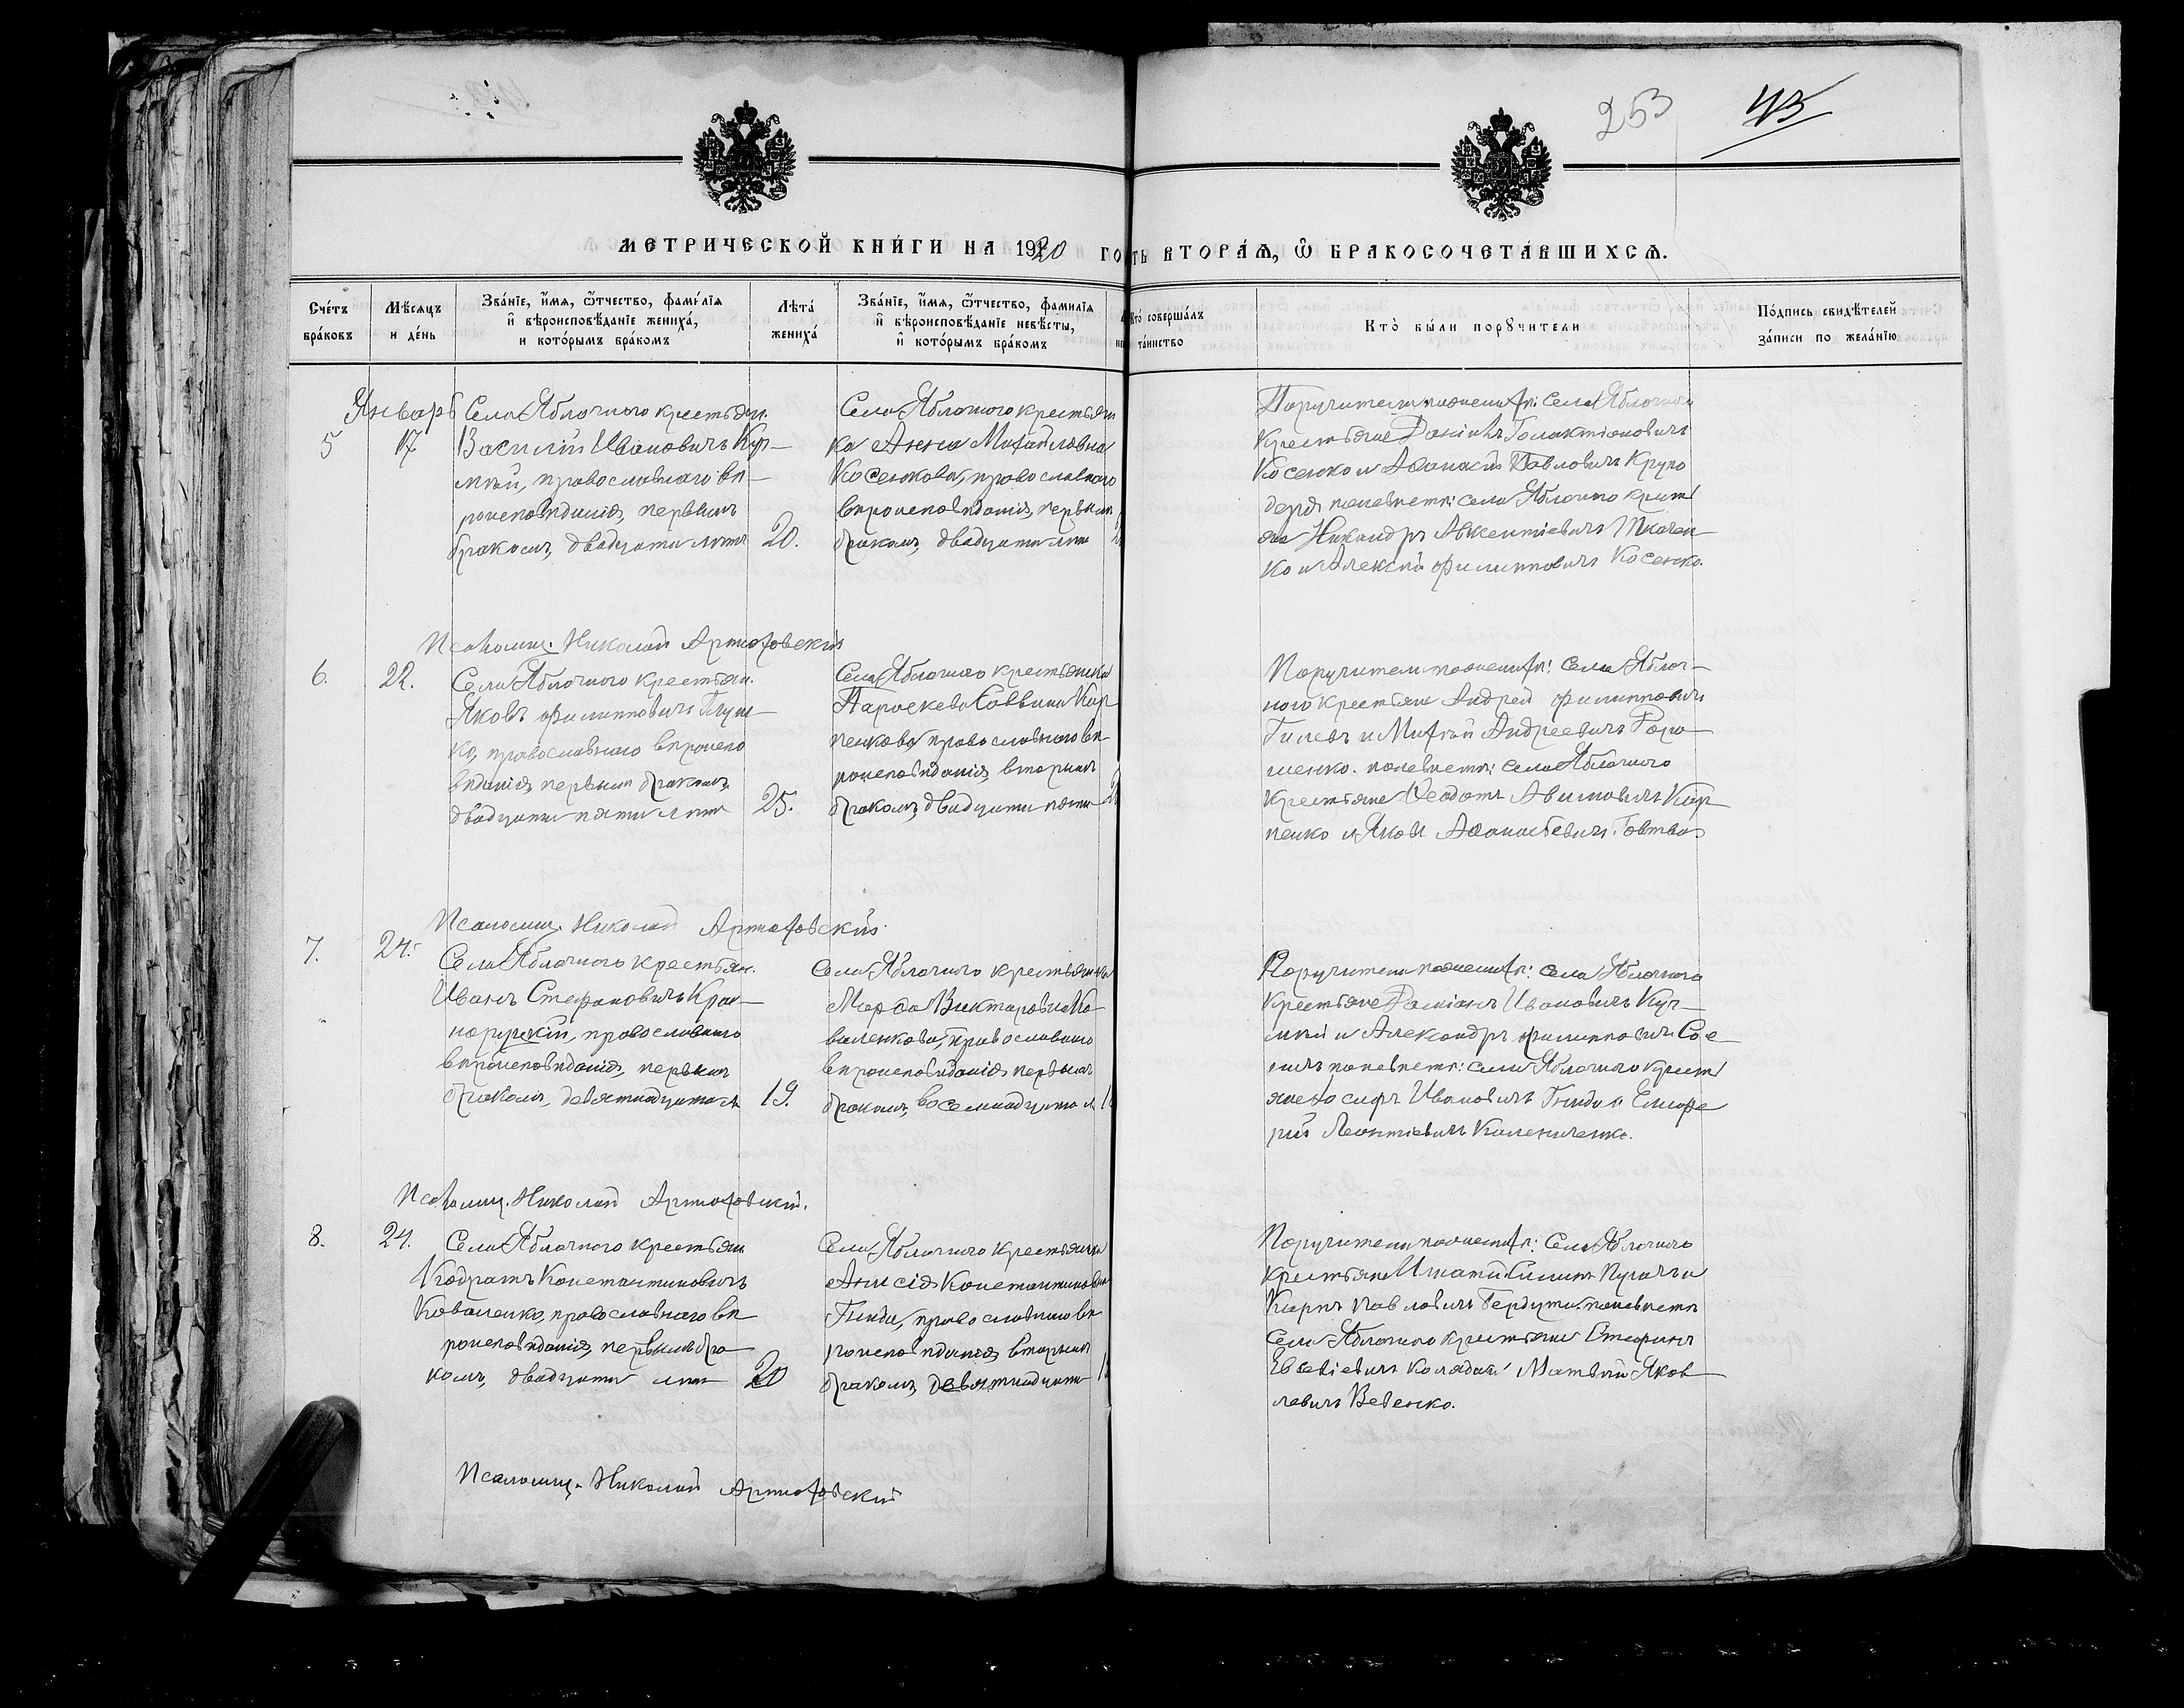 253 43
МЕТРИЧЕСКОЙ КНИ́ГИ НА 1920 ГО
ТЬ ВТОРА́Ѧ, Ѿ БРАКОСОЧЕТА́ВШИХСѦ.
Сче́тъ бра́ковъ
Мѣ́сяцъ и де́нь
Зва́нїе, и҆́мя, ѻ҆́тчество, фами́лїя
и҆ вѣроисповѣ́данїе жениха́,
и кото́рымъ бра́комъ
Лѣта́ жениха́
Зва́нїе, и҆́мя, ѻ҆́тчество, фамилїя
и҆ вѣроисповѣ́данїе невѣ́сты,
и҆ кото́рымъ бра́комъ
Кто̀ соверша́лъ
та́инство
Кто̀ бы́ли порꙋчи́тели
По́дпись свидѣ́телей
за́писи по жела́нїю
Январь
5
17
Села Яблочнаго крестьян.
Василій Ивановичъ Кур-
мый, православнаго вѣ-
роисповѣданія, первымъ
бракомъ, двадцати лѣтъ
20.
Села Яблочного крестьян
ка Анна Михайловна
Косенкова, православнаго
вѣроисповѣданія, первым
бракомъ, двадцати лѣт
Поручители по жениху: села Яблочнаго
крестьяне Галактіоновичъ
Косенко и Аѳанасій Павловичъ Крупо
деря по невѣстѣ: села Яблочного крест
яне Никандръ Авксентіевичъ Ткачен
ко и Алексѣй Филипповичъ Косенко.
Псаломщ. Николай Артюховскій
6.
22.
Села Яблочного крестьян.
Яковъ Филипповичъ Глуш
ко, православнаго вѣроиспо
вѣданія, первымъ бракомъ,
двадцати пяти лѣтъ
25.
Села Яблочного крестьянка
Параскева Саввина Кар
пенкова православнаго вѣ
роисповѣданія, вторымъ
бракомъ, двадцати пяти
Поручители по жениху: села Яблоч-
ного крестьяне Андрей Филипповичъ
и Андреевичъ
по невѣстѣ: села Яблочного
крестьяне Ѳеодотъ Кар
пенко и Яковъ Аѳанасьевичъ Говтва
Псаломщ. Николай Артюховскій
7.
24.
Села Яблочного крестьян.
Иванъ Стефановичъ Крас
норуцкій, православнаго
вѣроисповѣданія, первымъ
бракомъ, девятнадцати л
19.
Села Яблочного крестьянка
Марѳа Викторовна Ко
валенкова, православнаго
вѣроисповѣданія первымъ
бракомъ, восемнадцати л
Поручители по жениху: села Яблочнаго
крестьяне Даміанъ Ивановичъ Кур-
мый и Александръ Филипповичъ
по невѣстѣ: села Яблочного крест
яне Іосифъ Ивановичъ Гинда и Елиѳе
рій Леонтіевичъ Калениченко.
Псаломщ. Николай Артюховскій.
8.
24.
Села Яблочного крестьян
Кодратъ Константиновичъ
Коваленко, православнаго вѣ
роисповѣданія, первымъ бра
комъ, двадцати лѣтъ
20
Села Яблочного крестьянка
Анисія Константиновна
Гинда, православнаго вѣ
роисповѣданія вторымъ
бракомъ, девятнадцати
Поручители по жениху: села Яблочнаго
крестьяне Игнатій Пугачъ и
Карпъ Павловичъ по невѣстѣ
села Яблочного крестьяне Стефанъ
Евсевіевичъ Матвѣй Яков
левичъ Веденко.
Псаломщ. Николай Артюховскій